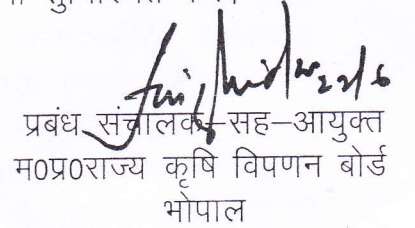 22/6
प्रबंध संचालक–सह–आयुक्त
म0प्र0राज्य कृषि विपणन बोर्ड
भोपाल